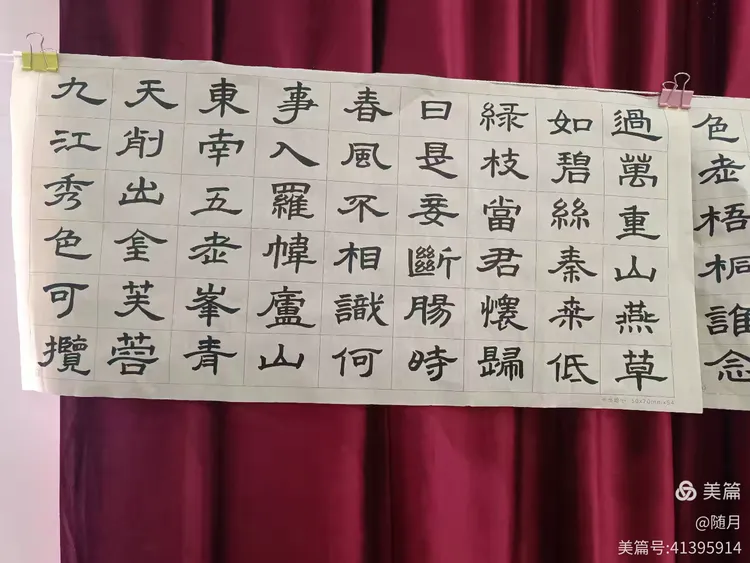 色老梧桐誰念
過萬重山燕草
如碧絲秦桒低
緑枝當君懷歸
日是妾斷腸時
春風不相識何
事入羅幃廬山
東南五老峯青
天削出金芙蓉
九江秀色可攬
美篇
@随月
美篇号:41395914